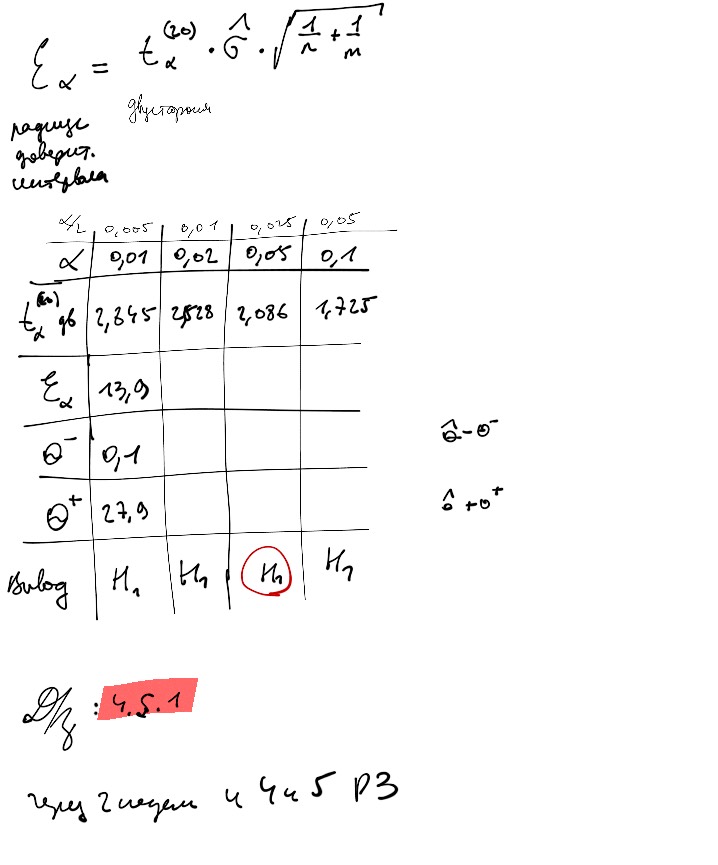 ε_α = t_α^(20) · σ̂ · √(1/n + 1/m)
двустороння
радиус
доверит.
интервала
α/2 0,005 0,01 0,025 0,05
α 0,01 0,02 0,05 0,1
t_α^(20) дв 2,845 2,528 2,086 1,725
ε_α 13,9
Θ⁻ 0,1
Θ⁺ 27,9
θ̂ - θ⁻
θ̂ + θ⁺
Вывод H₁ H₁ H₁ H₁
Д/з : 4.5.1
через 2 недели и 4 и 5 РЗ